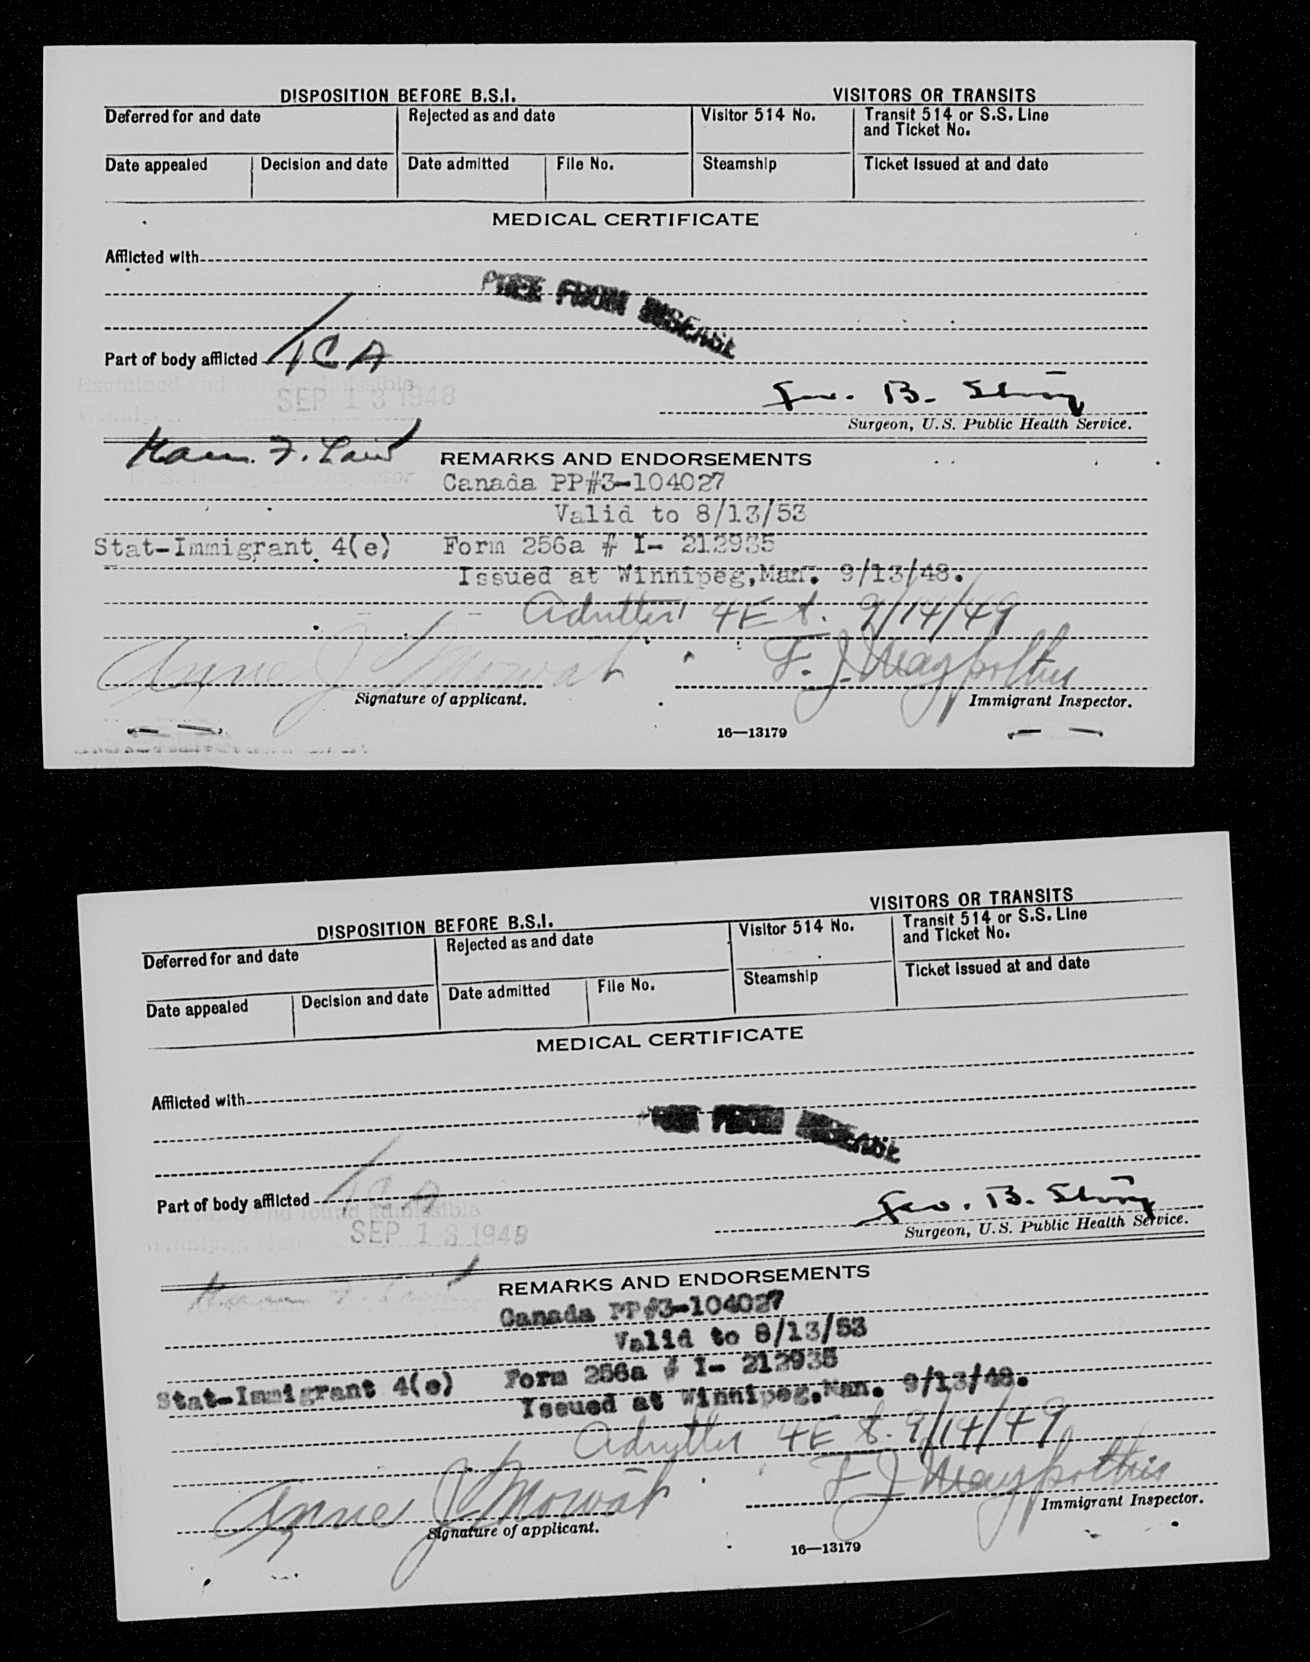 DISPOSITION BEFORE B.S.I. VISITORS OR TRANSITS
Deferred for and date Rejected as and date Visitor 514 No. Transit 514 or S.S. Line
and Ticket No.
Date appealed Decision and date Date admitted File No. Steamship Ticket issued at and date
MEDICAL CERTIFICATE
Afflicted with
FREE FROM DISEASE
Part of body afflicted
SEP 13 1948
Geo. B.
Surgeon, U.S. Public Health Service.
REMARKS AND ENDORSEMENTS
Canada PP#3-104027
Valid to 8/13/53
Stat-Immigrant 4(e) Form 256a # I- 212935
Issued at Winnipeg,Man. 9/13/48.
4E 9/14/49
Anne J Mowat F. J.
Signature of applicant. Immigrant Inspector.
16—13179
DISPOSITION BEFORE B.S.I. VISITORS OR TRANSITS
Deferred for and date Rejected as and date Visitor 514 No. Transit 514 or S.S. Line
and Ticket No.
Date appealed Decision and date Date admitted File No. Steamship Ticket issued at and date
MEDICAL CERTIFICATE
Afflicted with
FROM DISEASE
Part of body afflicted
found admissible
SEP 13 1948
Geo. B.
Surgeon, U.S. Public Health Service.
REMARKS AND ENDORSEMENTS
Canada PP#3-104027
Valid to 8/13/53
Stat-Immigrant 4(e) Form 256a # I- 212935
Issued at Winnipeg,Man. 9/13/48.
4E 9/14/49
Anne J Mowat F J
Signature of applicant. Immigrant Inspector.
16—13179